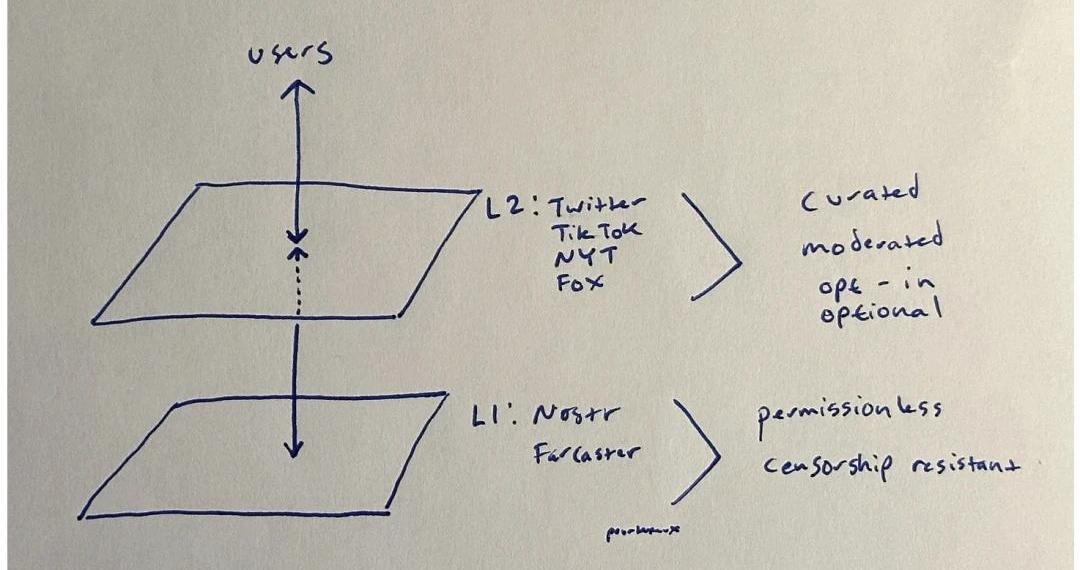 users
L2: Twitter
TikTok
NYT
Fox
curated
moderated
opt-in
optional
L1: Nostr
Farcaster
permissionless
censorship resistant